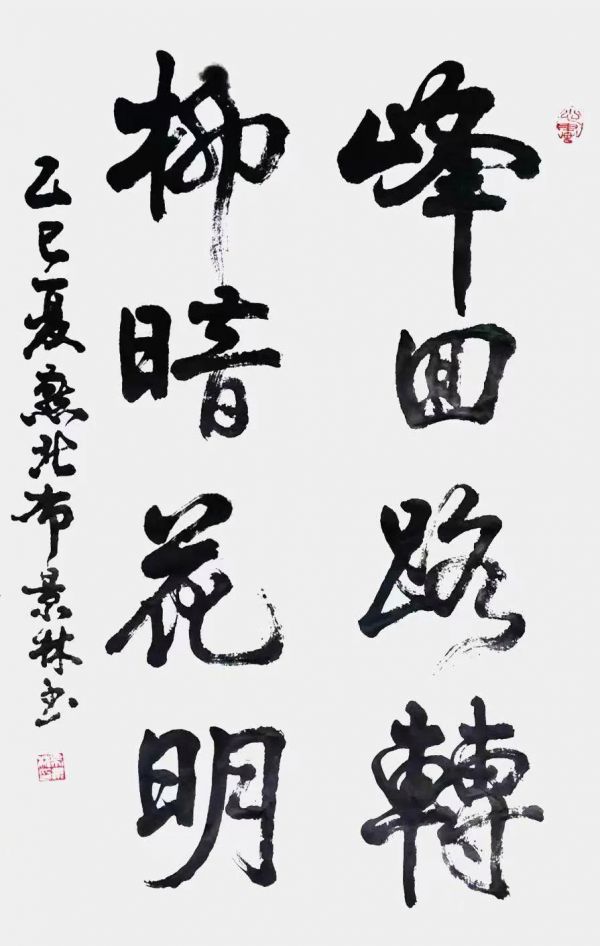 峰回路轉
柳暗花明
乙巳夏燕北布景林书